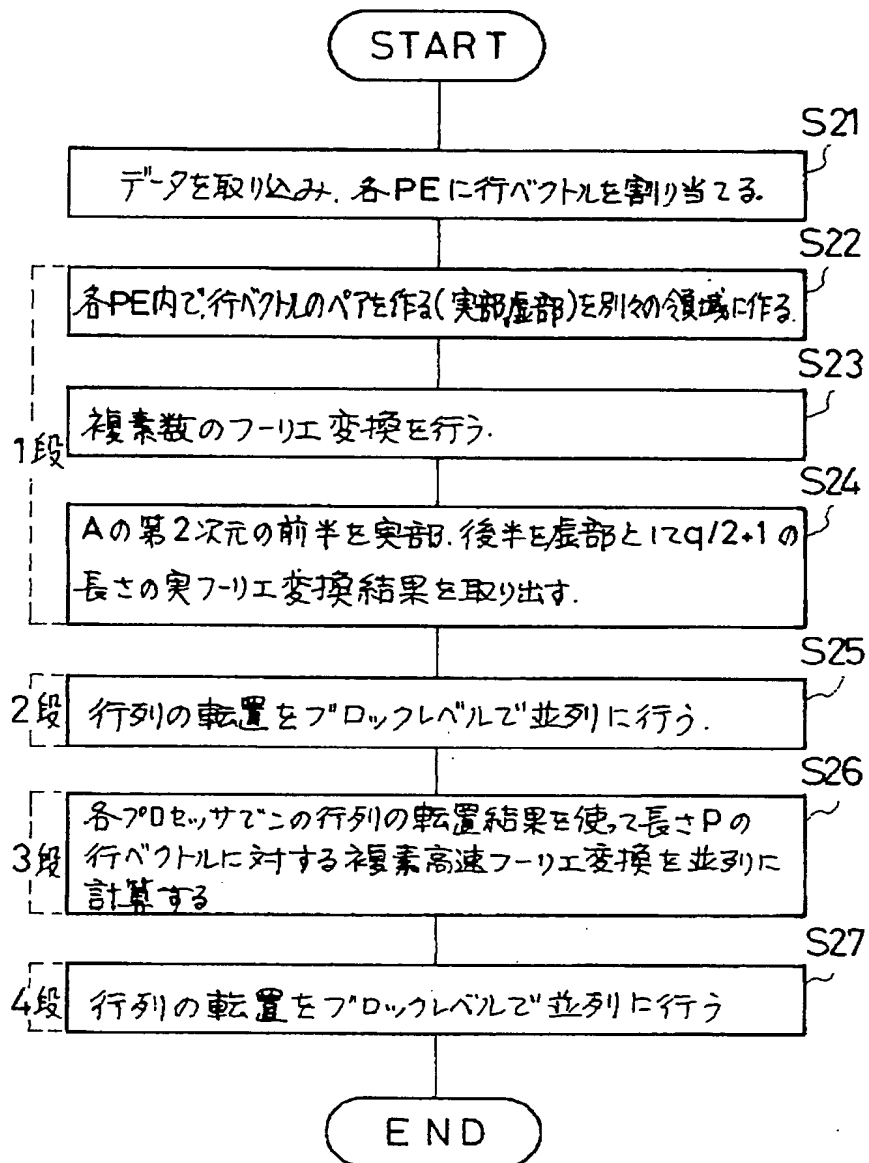 START
S21
データを取り込み、各PEに行ベクトルを割り当てる.
S22
各PE内で、行ベクトルのペアを作る(実部,虚部)を別々の領域に作る.
S23
複素数のフーリエ変換を行う.
1段
S24
Aの第2次元の前半を実部、後半を虚部としてq/2+1の
長さの実フーリエ変換結果を取り出す.
S25
2段
行列の転置をブロックレベルで並列に行う.
S26
各プロセッサでこの行列の転置結果を使って長さPの
3段
行ベクトルに対する複素高速フーリエ変換を並列に
計算する
S27
4段
行列の転置をブロックレベルで並列に行う
END